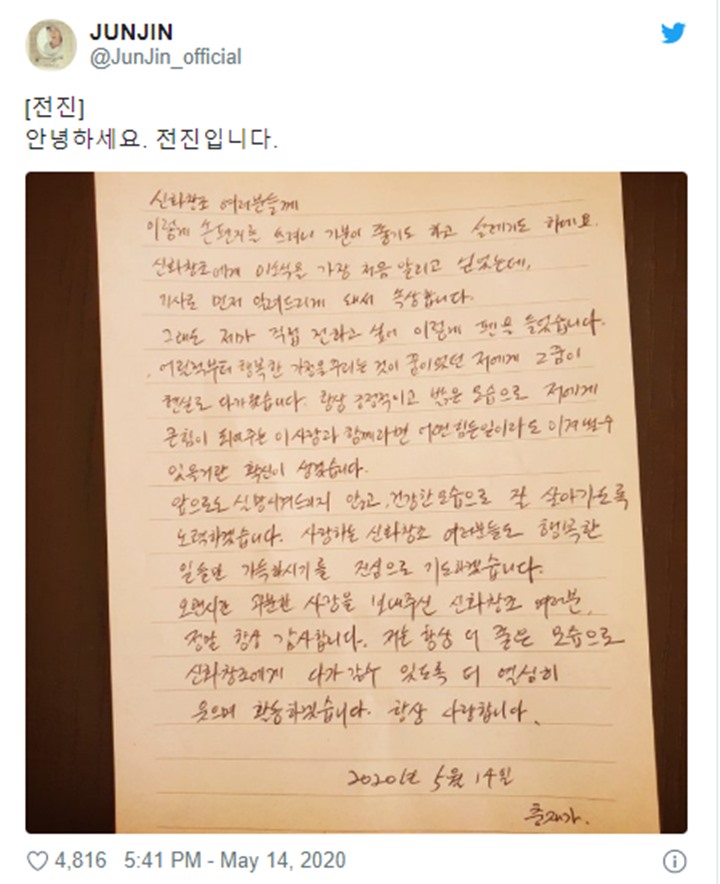 JUNJIN
@JunJin_official
[전진]
안녕하세요. 전진입니다.
신화창조 여러분들께
이렇게 손편지를 쓰려니 기분이 좋기도 하고 설레기도 하네요.
신화창조에게 이소식을 가장 처음 알리고 싶었는데,
기사로 먼저 알려드리게 돼서 속상합니다.
그래도 제가 직접 전하고 싶어 이렇게 펜을 들었습니다.
어릴적부터 행복한 가정을 꾸리는 것이 꿈이었던 저에게 그꿈이
현실로 다가왔습니다. 항상 긍정적이고 밝은 모습으로 저에게
큰힘이 되어주는 이사람과 함께라면 어떤 힘든일이라도 이겨낼수
있을거란 확신이 생겼습니다.
앞으로도 실망시켜드리지 않고, 건강한 모습으로 잘 살아가도록
노력하겠습니다. 사랑하는 신화창조 여러분들도 행복한
일들만 가득하시기를 진심으로 기도하겠습니다.
오랜시간 과분한 사랑을 보내주신 신화창조 여러분,
정말 항상 감사합니다. 저는 항상 더 좋은 모습으로
신화창조에게 다가갈수 있도록 더 열심히
웃으며 활동하겠습니다. 항상 사랑합니다.
2020년 5월 14일
충재가.
4,816 5:41 PM - May 14, 2020